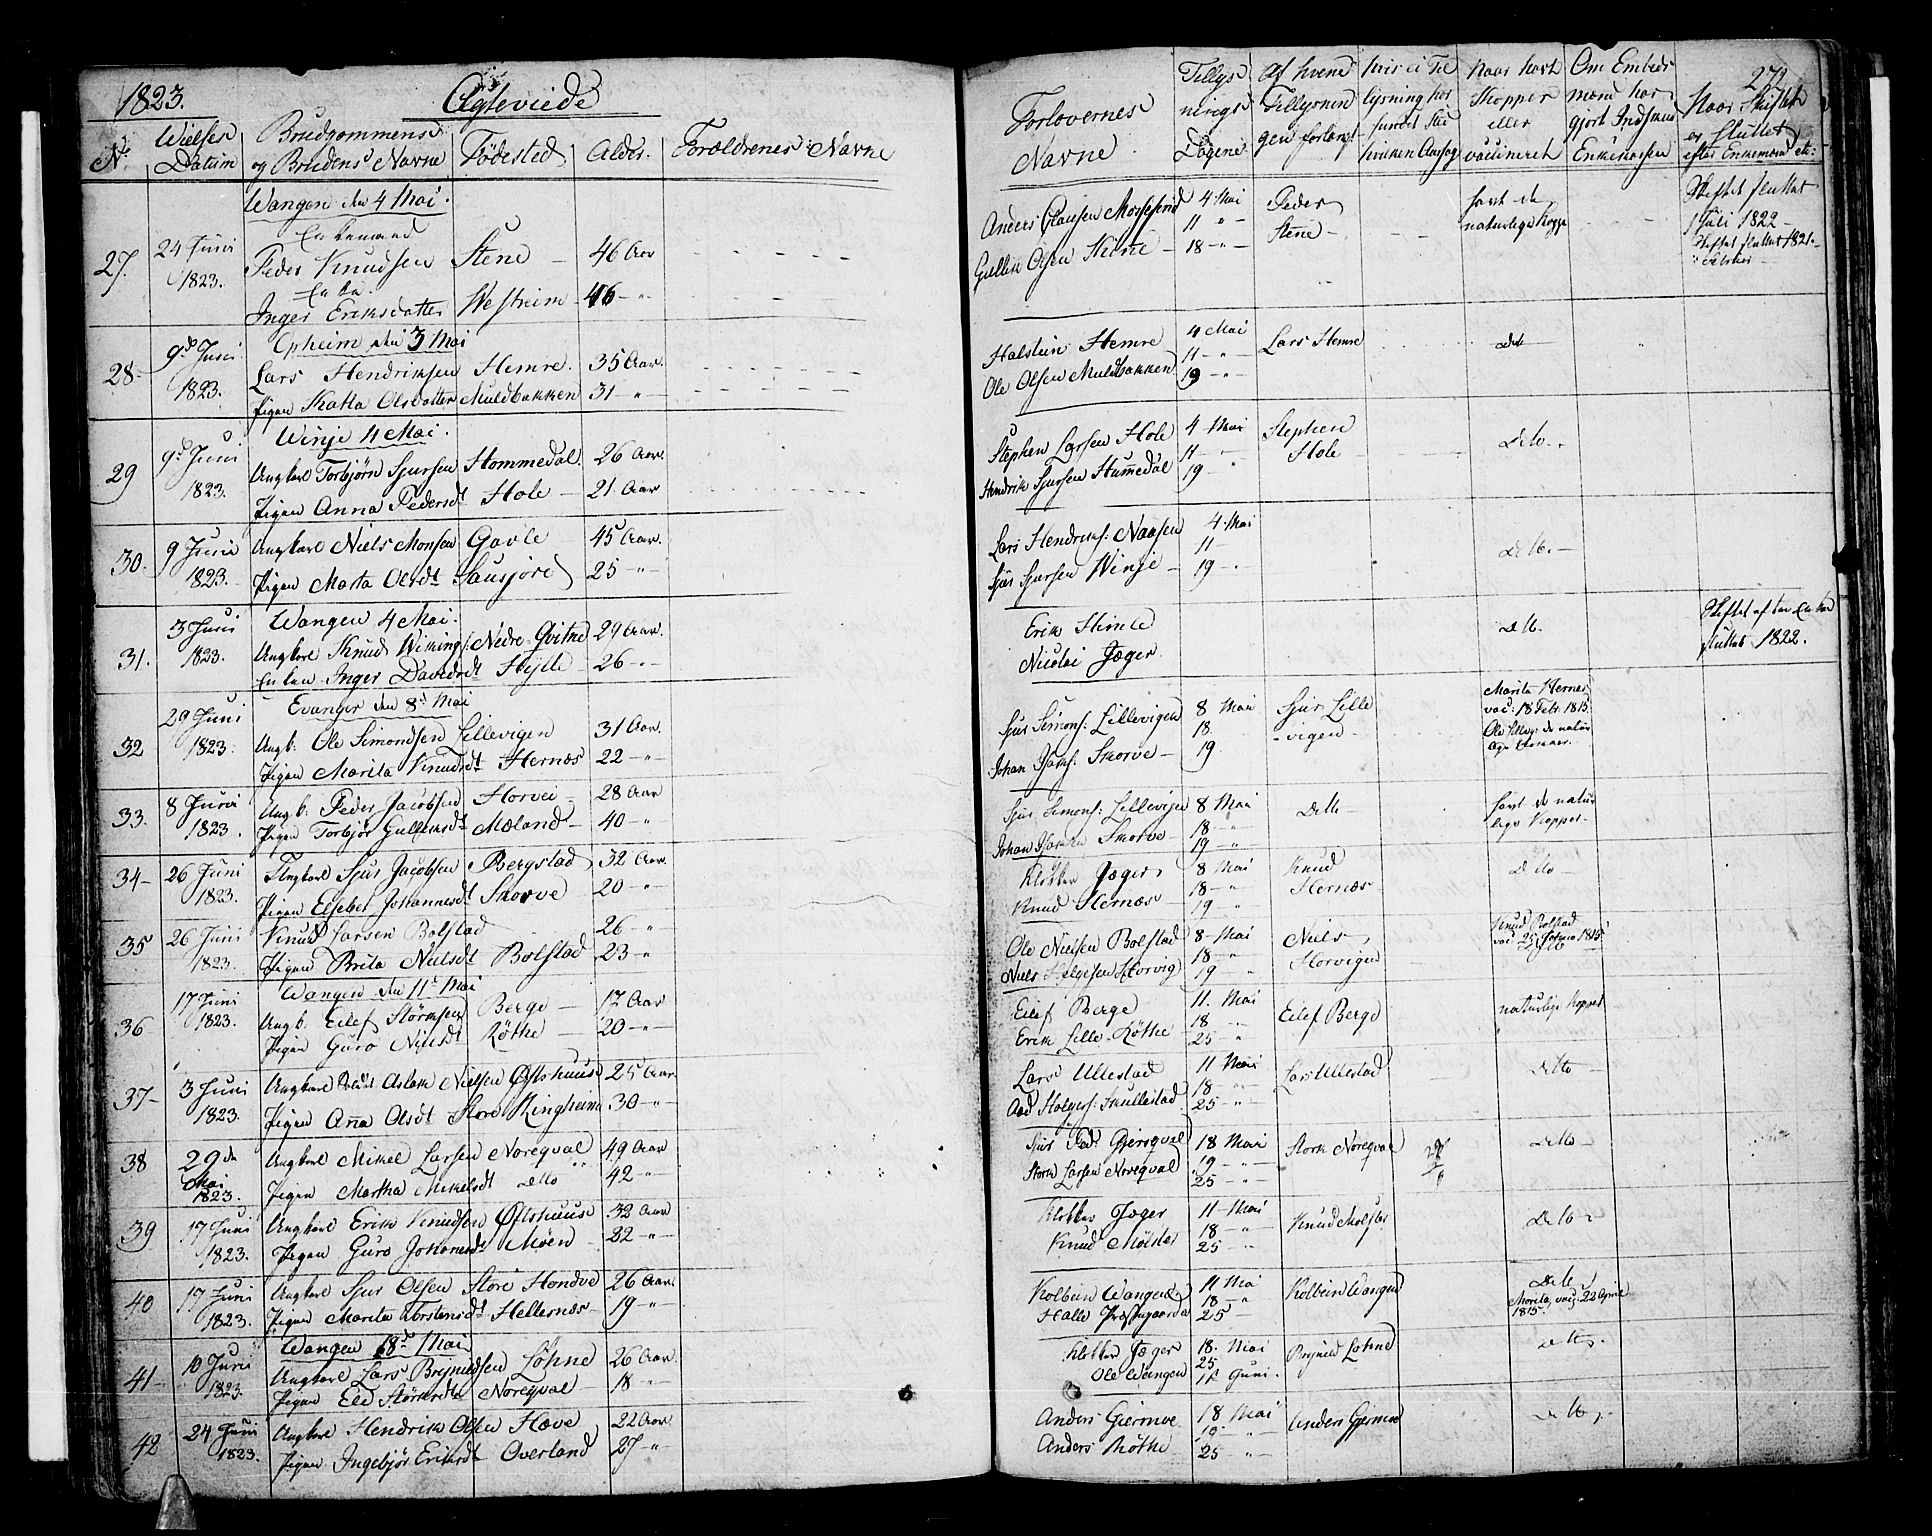 1823.
Ægteviede
No
Vielses Datum
Brudgommens og Brudens Navne
Fødested
Alder.
Forældrenes Navne
Wangen den 4 Mai.
27.
24 Juni 1823.
Enkemand
Peder Knudsen Stene 46 Aar
Enke
Inger Eriksdatter Westreim 46 - "
Opheim den 3 Mai
28
9d Juni 1823.
Lars Hendriksen Hemre. 35 Aar.
Pigen Katta Olsdatter Muldbakken 31 - "
Winje 4 Mai.
29
9d Juni 1823.
Ungkarl Torbjørn Sjursen Hommedal. 26 Aar.
Pigen Anna Pedersdt Hole - 21 Aar
30.
9 Juni 1823.
Ungkarl Niels Monsen Gavle 45 Aar.
Pigen Marta Olsdt Sausjord 25 - "
Wangen 4 Mai.
31.
3 Juni 1823.
Ungkarl Knud Wikings: Nedre Qvitne 29 Aar.
Enken Inger Davidsdt Hylle 26 - "
Evanger den 8d Mai
32
29 Juni 1823.
Ungk: Ole Simondsen Lillevigen 31 Aar.
Pigen Marita Knudsdt Hernæs 22 - "
33.
8 Juni 1823.
Ungk: Peder Jacobsen Horvei 28 Aar
Pigen Torbjør Gulleiksdt Mæland 40 - "
34
26 Juni 1823.
Ungkarl Sjur Jacobsen Bergstad 32 Aar.
Pigen Elseber Johannesdt Skorve 20 - "
35
26 Juni 1823.
Knud Larsen Bolstad 26 - "
Pigen Brita Nielsdt Bolstad 23 - "
Wangen den 11t Mai
36
17 Juni 1823.
Ungk. Eilef Størksen Berge 17 Aar
Pigen Guro Nielsdt Røthe 20 - "
37
3 Juni 1823.
Ungkarl Soldat Aslak Nielsen Øfsthuus 25 Aar
Pigen Anna Olsdt Store Ringheim 30 - "
38
29de Mai 1823.
Ungkarl Mikel Larsen Noreqval 49 Aar
Pigen Martha Mikelsdt ditto 42 - "
39
17 Juni 1823.
Ungkarl Erik Knudsen Øfsthuus 32 Aar
Pigen Guro Johannesdt Møen 22 - "
40
17 Juni 1823.
Ungkarl Sjur Olsen Store Hondve 26 Aar.
Pigen Marita Torstensdt Hellernæs 19 - "
Wangen 18d Mai
41
10 Juni 1823.
Ungkarl Lars Brynildsen Løhne 26 Aar.
Pigen Eli Størksdt Noreqval 18 - "
42
24 Juni 1823.
Ungkarl Hendrik Olsen Hæve 22 Aar
Pigen Ingebjør Eriksdt Øverland 27 - "
Forlovernes Navne
Tillysnings Dagene
Af hvem Tillysningen forlangt
Naar havt Kopper eller vaccineret
Om Embedsmand har gjort Indskud Enkekassen
Naar Skiftet er sluttet efter Enkemand etc:
272
Anders Clausen 4 Mai Peder havt de Skiftet sluttet
11 " - Stene naturlige Kopper 1 Juli 1822
Gullek Olsen Skine 18 - " - Skiftet sluttet 1821.
Halstein Hemre 4 Mai Lars Hemre dito
11 - "
Ole Olsen Muldbakken 19 - "
Stephen Larsen Hole 4 Mai Stephen dito.
11 - Hole
Hendrik Sjursen Humedal 19 -
Lars Hendriks: Naasen 4 Mai dito.
11 -
Sjur Sjursen Winje 19 - "
Erik Himle dito. Skiftet efter Enken
Nicolai Jæger sluttet 1822.
Sjur Simons: Lillevigen 8 Mai Sjur Lille Marita Hernes
18. vigen vac: 18 Febr. 1815
Johan Skorve 19 Ole Lillev: de naturlige Kopper.
Sjur Simons: Lillevigen 8 Mai ditto havt de natur
18 - " lige Kopper
Johan Skorve 19 - "
Klokker Jæger 8 Mai Knud dito
18 - " Hernæs
Knud Hernæs 19 "
Ole Nielsen Bolstad 8 Mai Niels Knud Bolstad
18 - " Horvigen vac 1815
Niels Helgesen Horvig 19 "
Eilef Berge 11. Mai Eilef Berge naturlige Kopper
18 "
Erik Lille Røthe 25 "
Lars Ullestad 11 Mai Lars Ullestad ditto
18 - "
Aad Holgers: Skullestad 25 - "
Sjur Gjersqval 18 Mai Størk Noreqval ditto
19 - "
Størk Larsen Noreqval 25 - "
Klokker Jæger 11 Mai Knud Mølster dito
18 - "
Knud Mølster 25 - "
Kolbein Wangen 11 Mai Kolbein Wangen dito
18 - " Marita, vac. 22 April
Halle Præstegaarden 25 - 1815
Klokker Jæger 18. Mai Brynild Løhne ditto.
25
Ole Wangen 1t Juni.
Anders Gjermoe 18 Mai Anders Gjermoe dito.
19 - "
Anders Røthe 25 - "